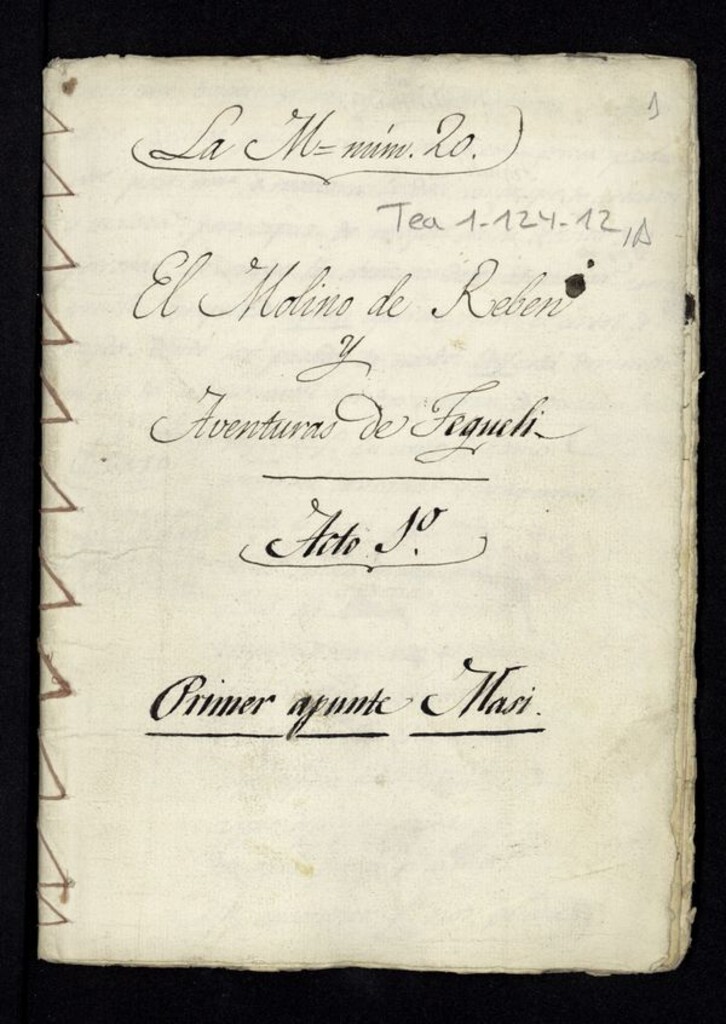 1
La M= núm. 20.
Tea 1-124-12, A
El Molino de Keben
y
Aventuras de Tequeli
Acto 1º
Primer apunte Masi.